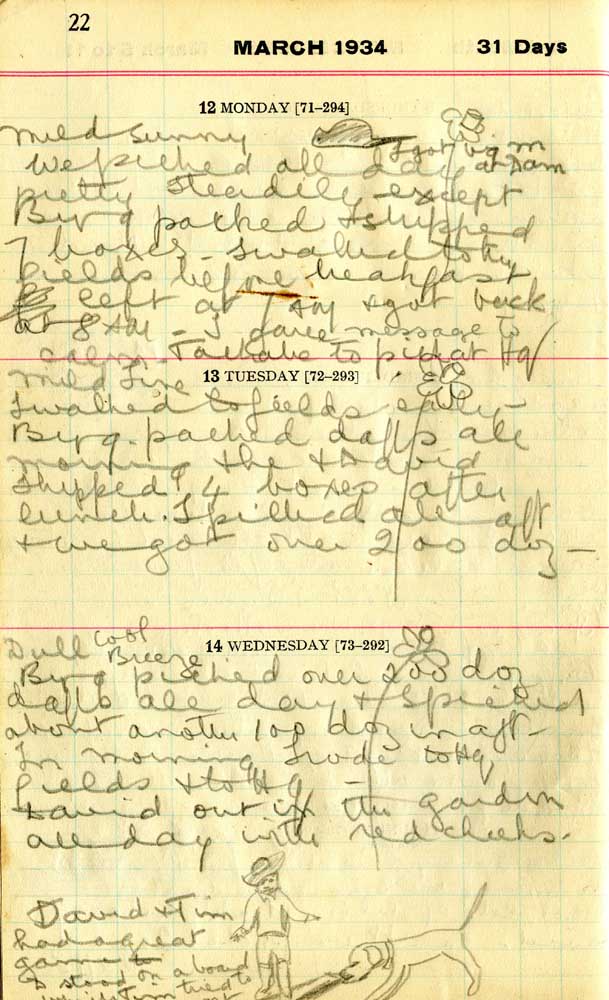 22
MARCH 1934 31 Days
12 MONDAY [71–294]
Mild Sunny
I got wig m
at Dam
We picked all day
pretty steadily except
Byrg packed & shipped
7 boxes. I walked to Hq
fields before breakfast
left at 7 AM & got back
at 8 AM – I gave message to
to pick at Hq
13 TUESDAY [72–293]
Mild Fine
I walked to fields early –
Byrg. packed daffs all
morning & he & David
shipped 4 boxes after
lunch. I picked all aft
& we got over 200 doz –
14 WEDNESDAY [73–292]
Dull cool
Breeze
Byrg picked over 200 doz
daffs all day & I picked
about another 100 doz in aft –
In morning I rode to Hq
fields & to Hq –
David out in the garden
all day with red cheeks.
David & Tim
had a great
game
D stood on a board
whilst Tim tried to